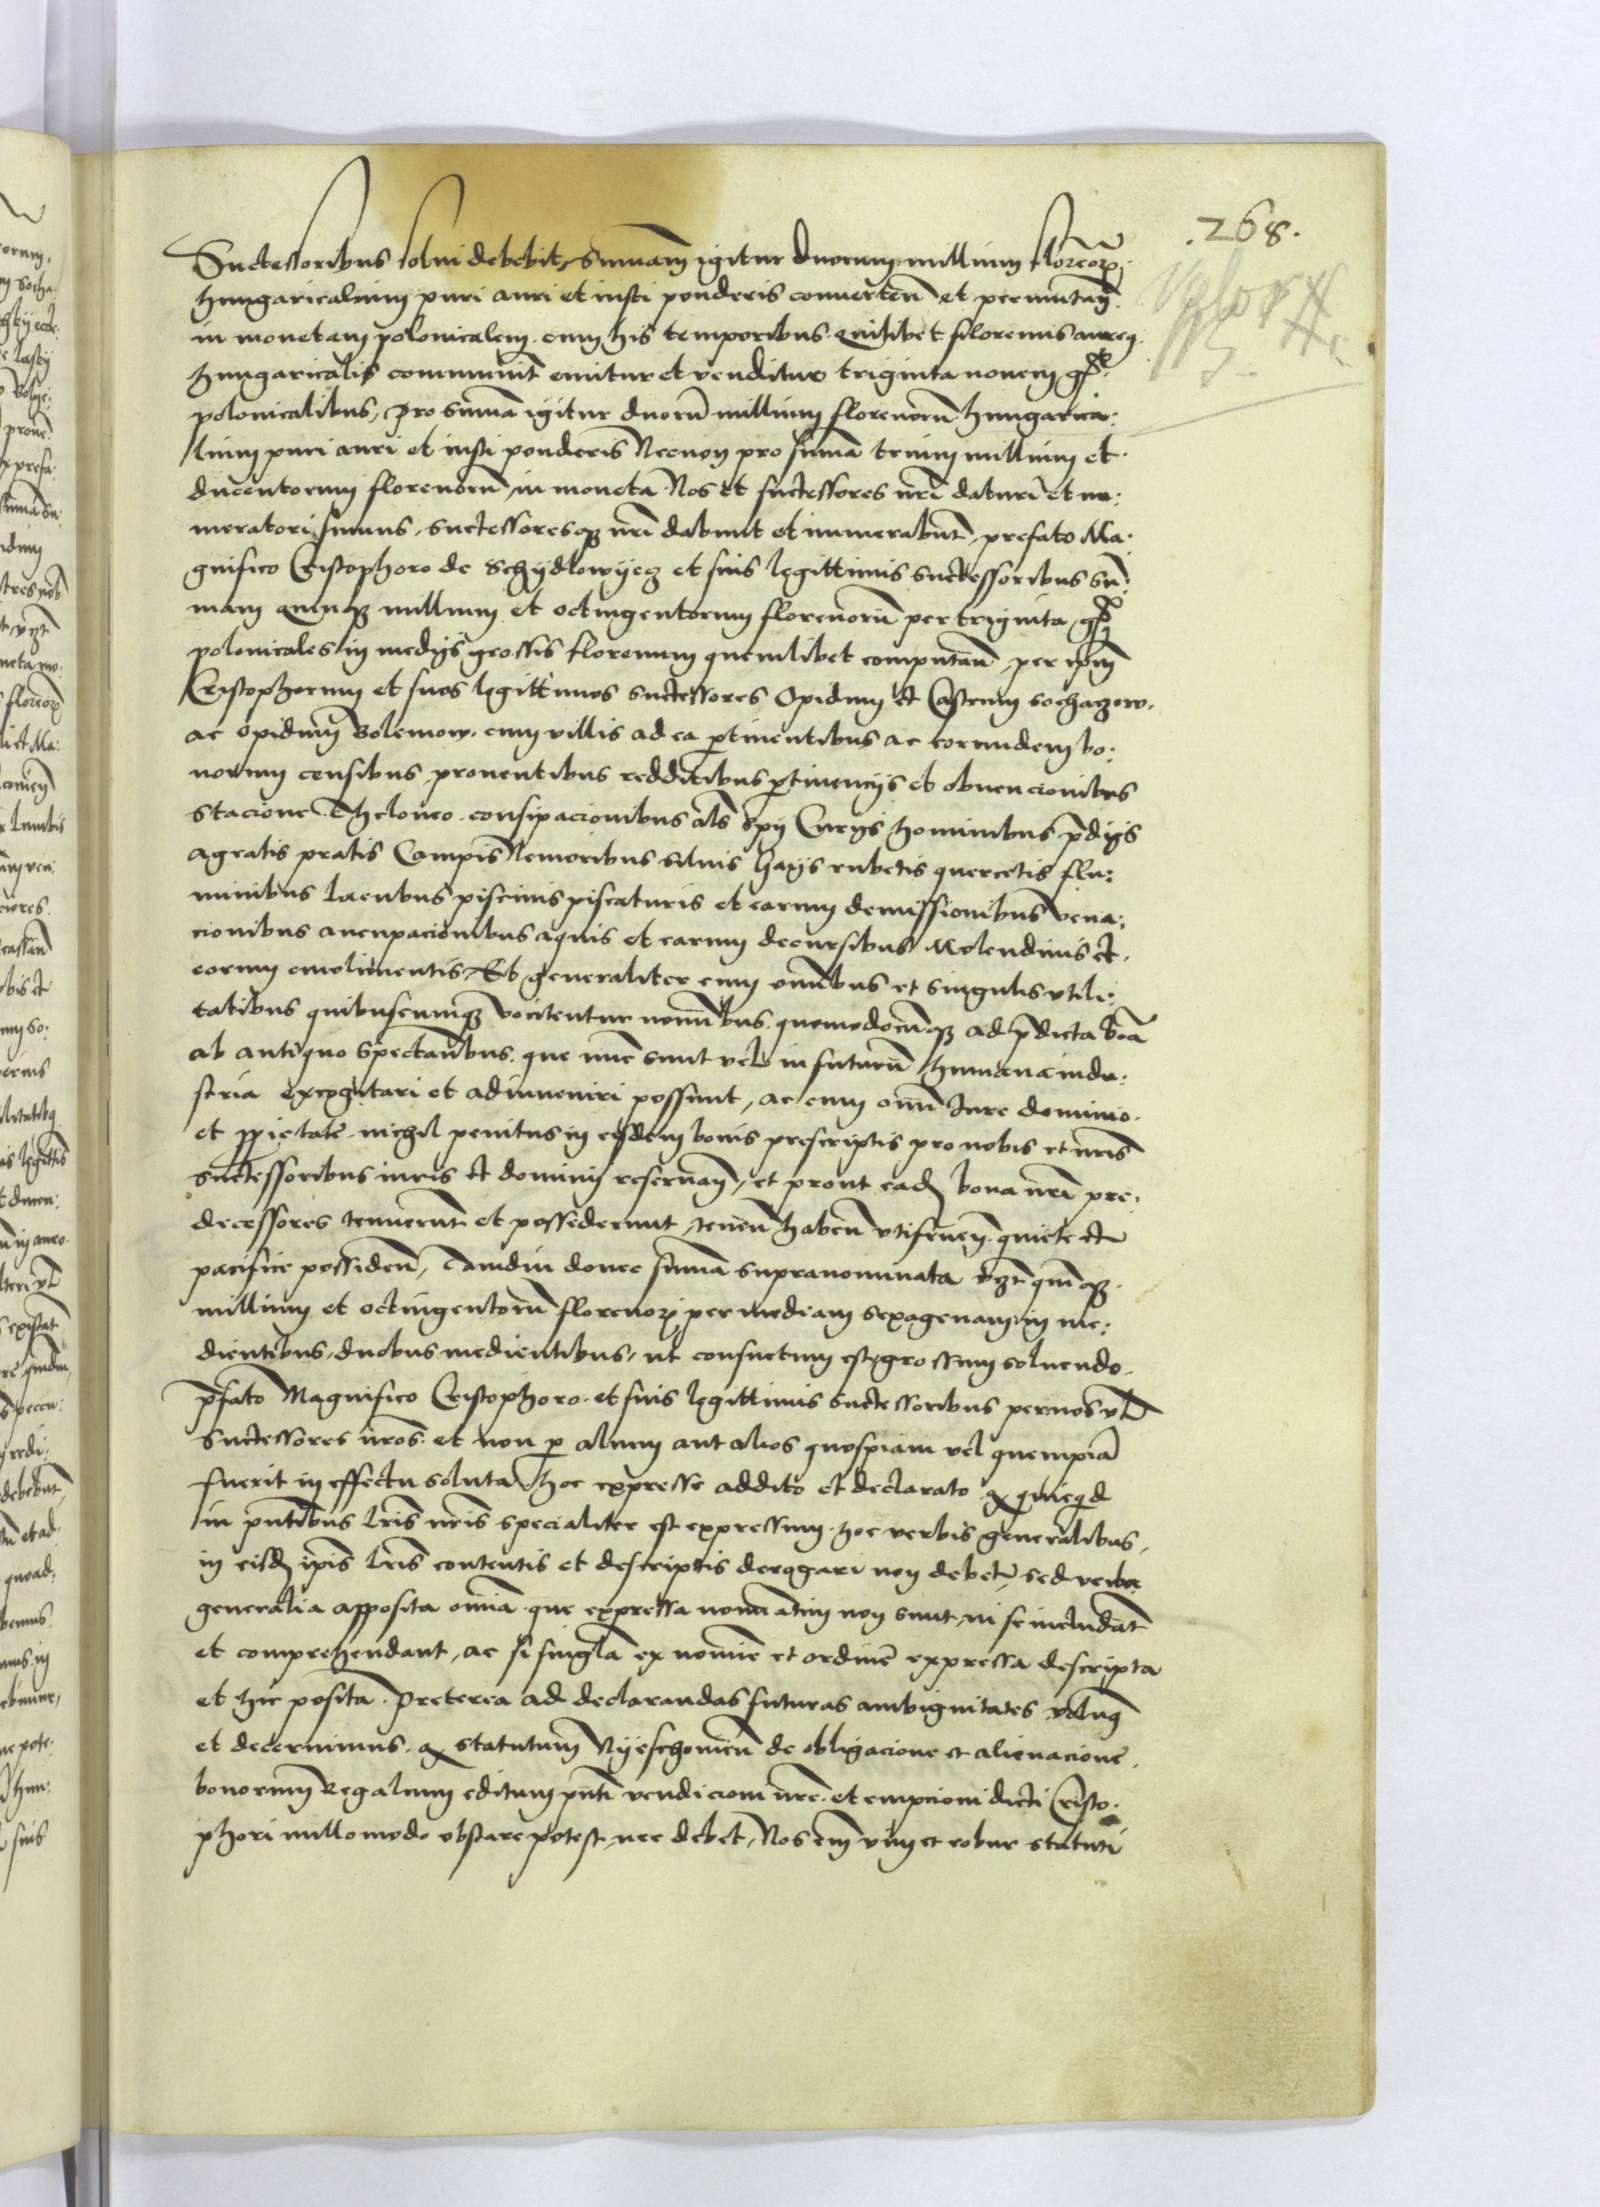 .268.
Successoribus solui debebit, Summam igitur duorum millium floreorum
hungaricalium puri auri et iusti ponderis conuerteñ et permutañ
in monetam polonicalem. cum his temporibus quilibet florenus aureus
hungaricalis communiter emitur et venditur triginta nouem gross:
polonicalibus, Pro summa igitur duorũ millium florenorũ hungarica:
lium puri auri et iusti ponderis Necnon pro summa trium millium et
ducentorum florenorũ in moneta Nos et successores nri daturi et nu:
meraturi sumus, successoresqz nri dabunt et numerabunt, prefato Ma:
gnifico Cristophoro de Schydlowyecz et suis legittimis successoribus sum:
mam quinqz millium et octingentorum florenorũ per triginta gross
polonicales in medijs grossis florenum quemlibet computañ, per ipm
Cristophorum et suos legittimos successores Opidum et Castrum sochaczow.
ac opidum Bolemow. cum villis ad ea ptinentibus ac eorundem bo:
norum censibus prouentibus redditibus ptinencijs et obuencionibus
stacione Theloneo. consipacionibus als Spy Curijs hominibus pdijs
agratis pratis Campis Nemoribus siluis Gayis rubetis quercetis flu:
minibus lacubus piscinis piscaturis et earum demissionibus vena:
cionibus aucupacionibus aquis et earum decursibus Molendinis et
eorum emolimentis Et generaliter cum omnibus et singulis vtili:
tatibus quibuscumqz vocitentur nomibus. quomodocumqz ad pdicta bona
ab antiquo spectantibus. que nunc sunt vel in futurũ humana indu:
stria excogitari et adinueniri possunt, ac cum omni Iure dominio.
et ppietate. nichil penitus in eisdem bonis prescriptis pro nobis et nris
successoribus iuris et dominij reseruañ, et prout eadem bona nri pre:
decessores tenuerunt et possederunt, teneñ habeñ vtifrueñ. quiete et
pacifice possideñ, Tamdiu donec summa supranominata vzt quinqz.
millium et octingentorũ florenorum per mediam sexagenam in me:
dientibus, duobus medientibus, ut consuetum est, grossum soluendo.
pfato Magnifico Cristophoro. et suis legittimis successoribus per nos vel
successores nros. et non p alium aut alios quospiam vel quempiã
fuerit in effectu soluta, Hoc expresse addito et declarato q quicqd
in pntibus lris nris specialiter est expressum. hoc verbis generalibus,
in eisdem ipis lris contentis et descriptis derogari non debet, sed verba
generalia apposita omnia. que expressa nominatim non sunt, in se includant
et comprehendant, ac si singla ex nomine et ordine expressa descripta
et hic posita. Preterea ad declarandas futuras ambiguitates volumus
et decernimus. q statutum Nyeschouieñ de obligacione et alienacione.
bonorum Regalium editum pnti vendicioni nre. et empcioni dicti Cristo:
phori nullomodo obstare potest, nec debet, Nos em vim et robur statuti